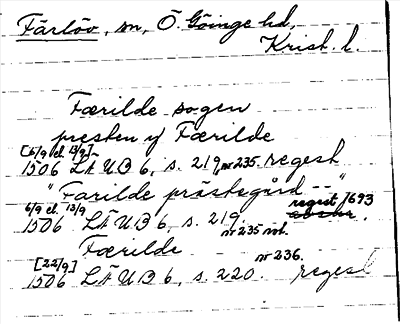 Färlöv, sn, Ö. Göinge hd,
Krist. l.
Færilde sogen
presten y Færilde
[6/9 el. 13/9]
1506 LÄUB 6, s. 219, nr 235. regest
"Farilde prästegård --"
6/9 el. 13/9 regest 1693
1506 LÄUB 6, s. 219.
nr 235 not.
Færilde
[22/9] nr 236.
1506 LÄUB 6, s. 220. regest